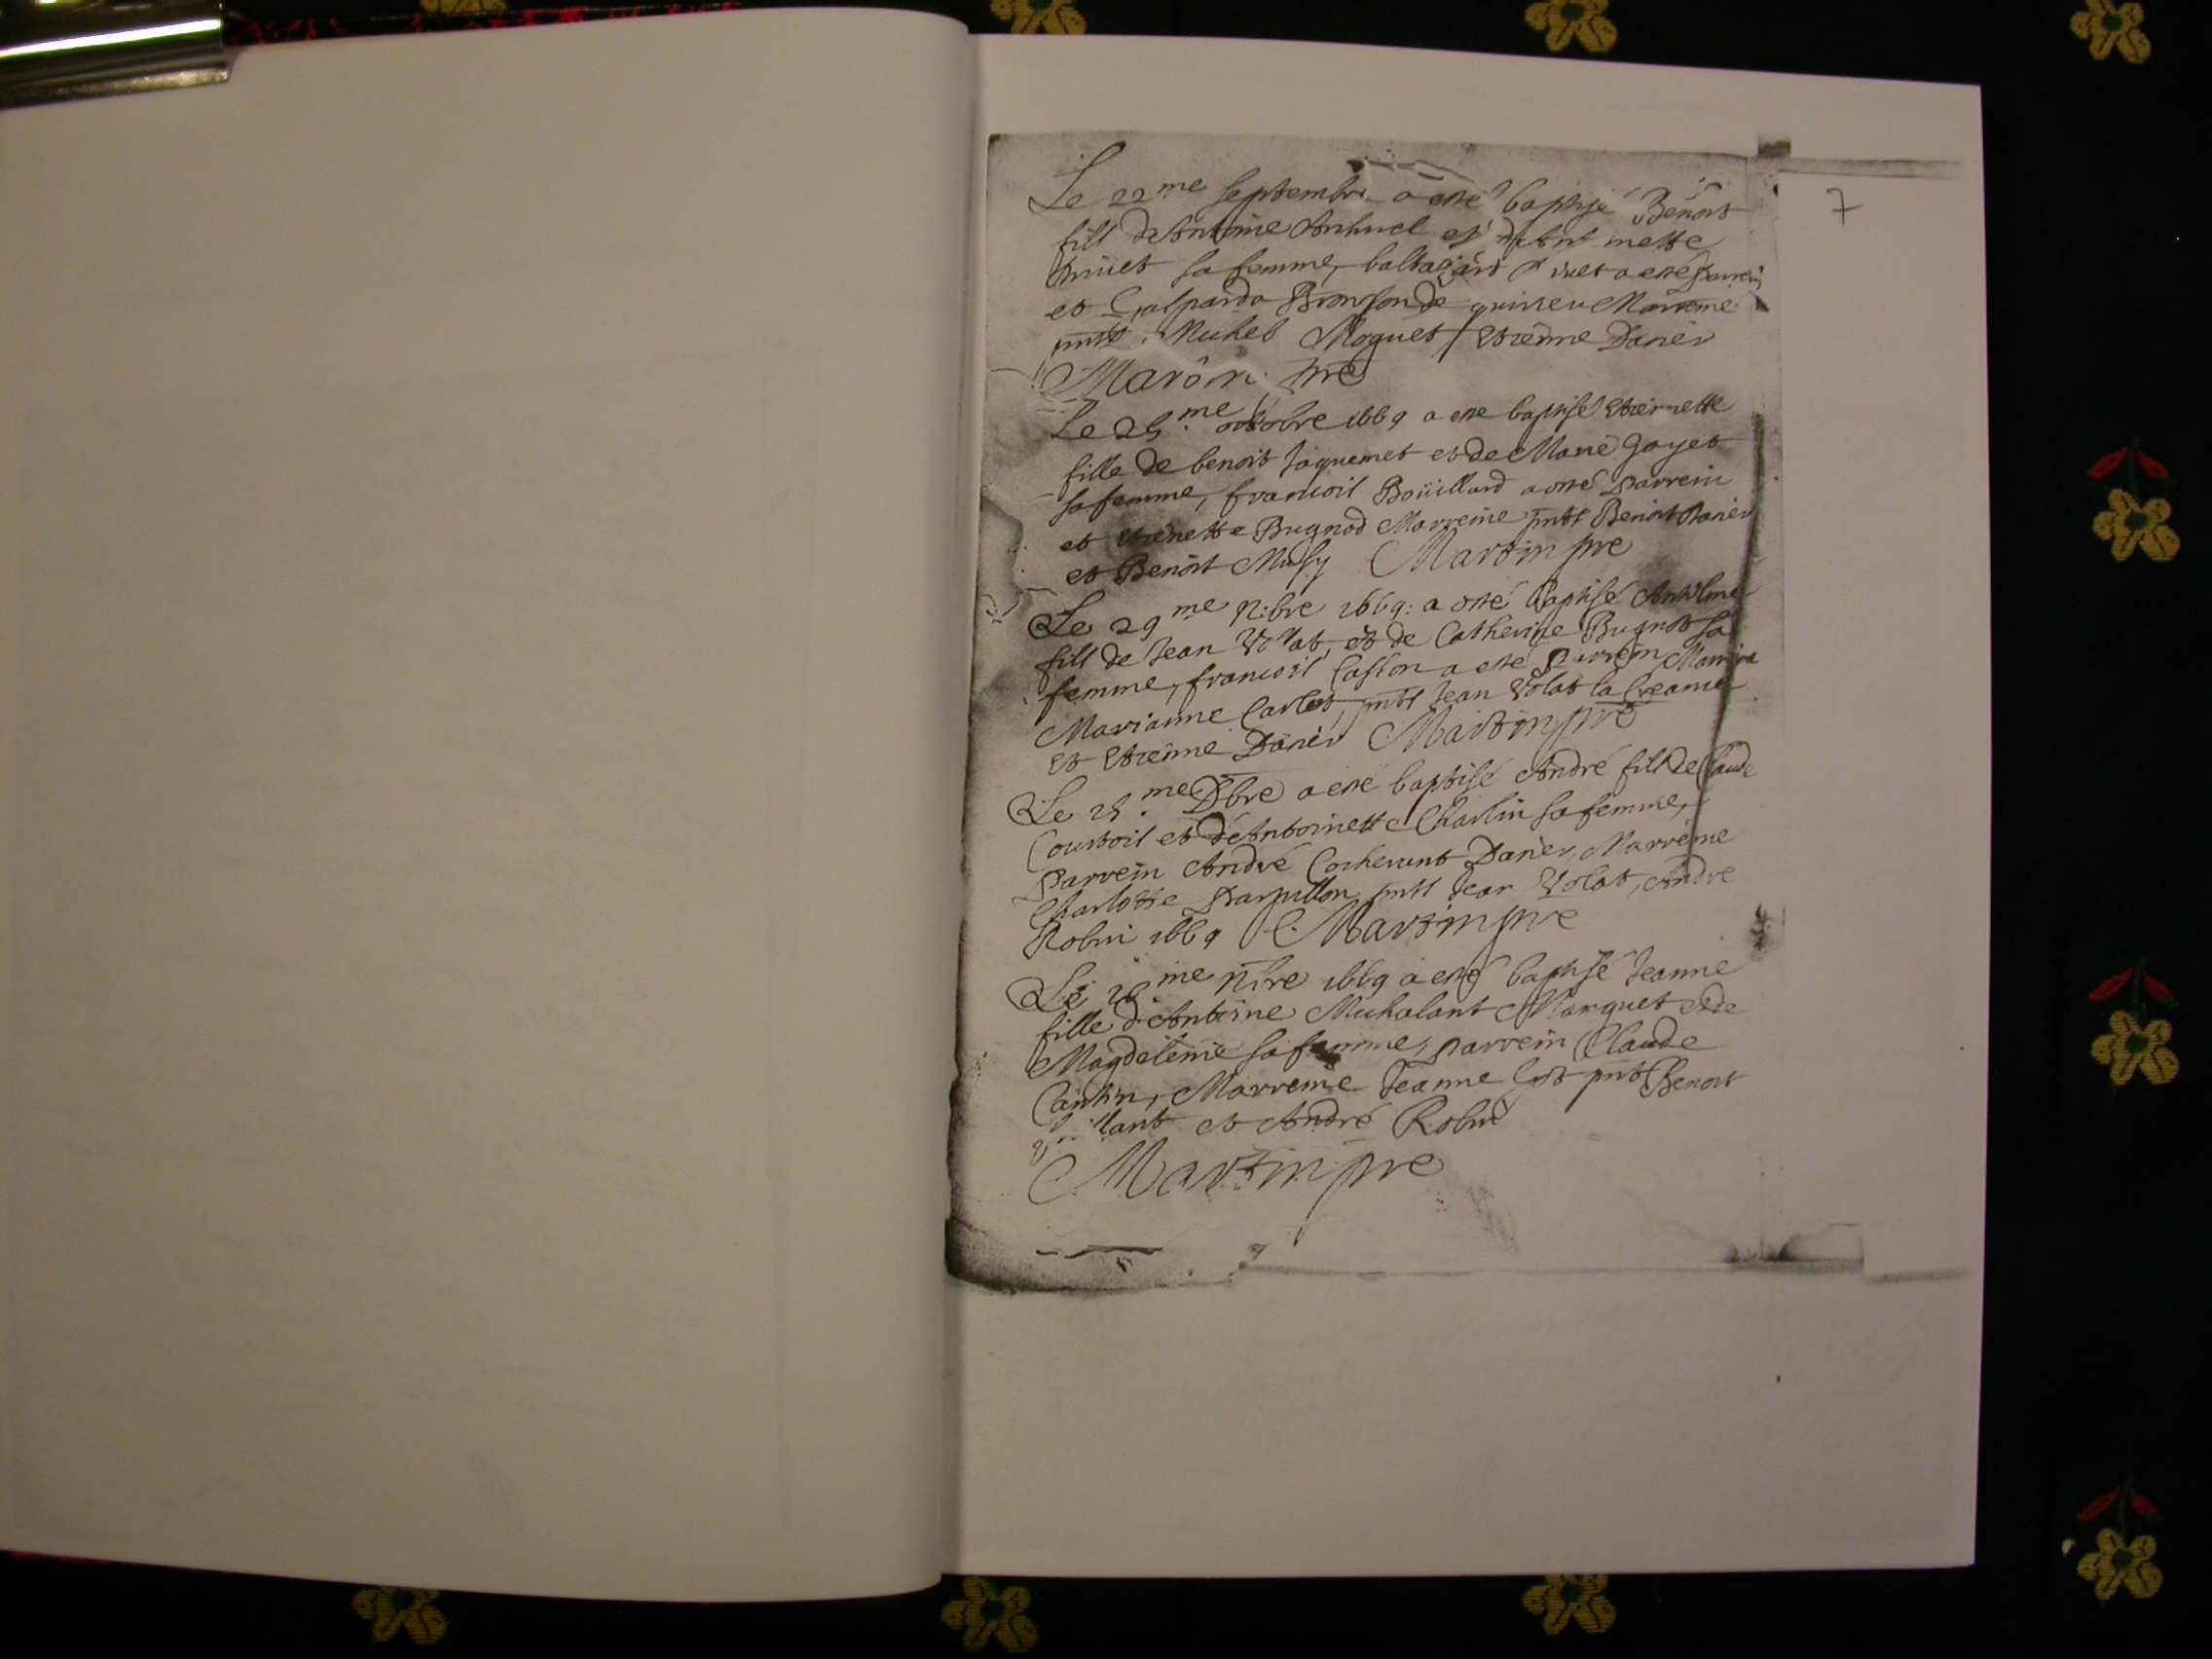 7
Le 22me septembre a esté baptisé Benoit
fils d'Antoine et
sa femme, a esté parrein
et Marreine
pnts. Michel Moguet, Etienne Danér
Martin pre
Le 25.me octobre 1669 a esté baptisé Etiennette
fille de benoit Jaquemet et de Marie Gayet
sa femme, francois Boüillard a esté parrein
et Etiennette Bugnod Marreine pnts Benoit Danér
et Benoit Musy Martin pre
Le 29me 9.bre 1669: a esté baptisé Antelme
fils de Jean Volat, et de Catherine Bugnot sa
femme, francois Casson a esté parrein Marreine
Marianne Carlet, pnts Jean Volat
et Etienne Danér Martin pre
Le 25.me Xbre a esté baptisé André fils de Claude
Courtois et d'Antoinette Charlin sa femme,
Parrein André Cocherent Danér, Marreine
Charlotte Parpillon pnts Jean Volat, André
Robin 1669 Martin pre
Le me 1669 a esté baptisé Jeanne
fille d'Antoine Michalant Marguet et de
Magdeleine sa femme, parrein Claude
Cantin, Marreine Jeanne pnts Benoit
et André Robin
Martin pre